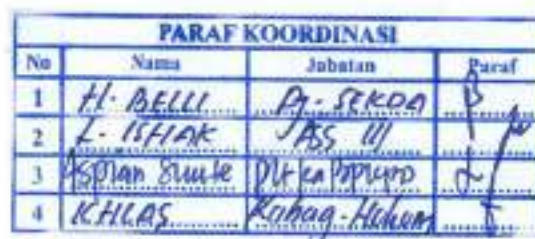 PARAF KOORDINASI
No Nama Jabatan Paraf
1 H. BELLI Pj. SEKDA
2 L. ISHAK ASS III
3 Asplan Plt
4 ICHLAS Kabag. Hukum